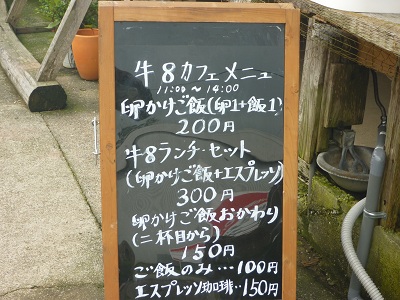 牛8カフェメニュ
11:00～14:00
卵かけご飯(卵1+飯1)
200円
牛8ランチ・セット
(卵かけご飯+エスプレッソ)
300円
卵かけご飯おかわり
(二杯目から)
150円
ご飯のみ…100円
エスプレッソ珈琲‥150円